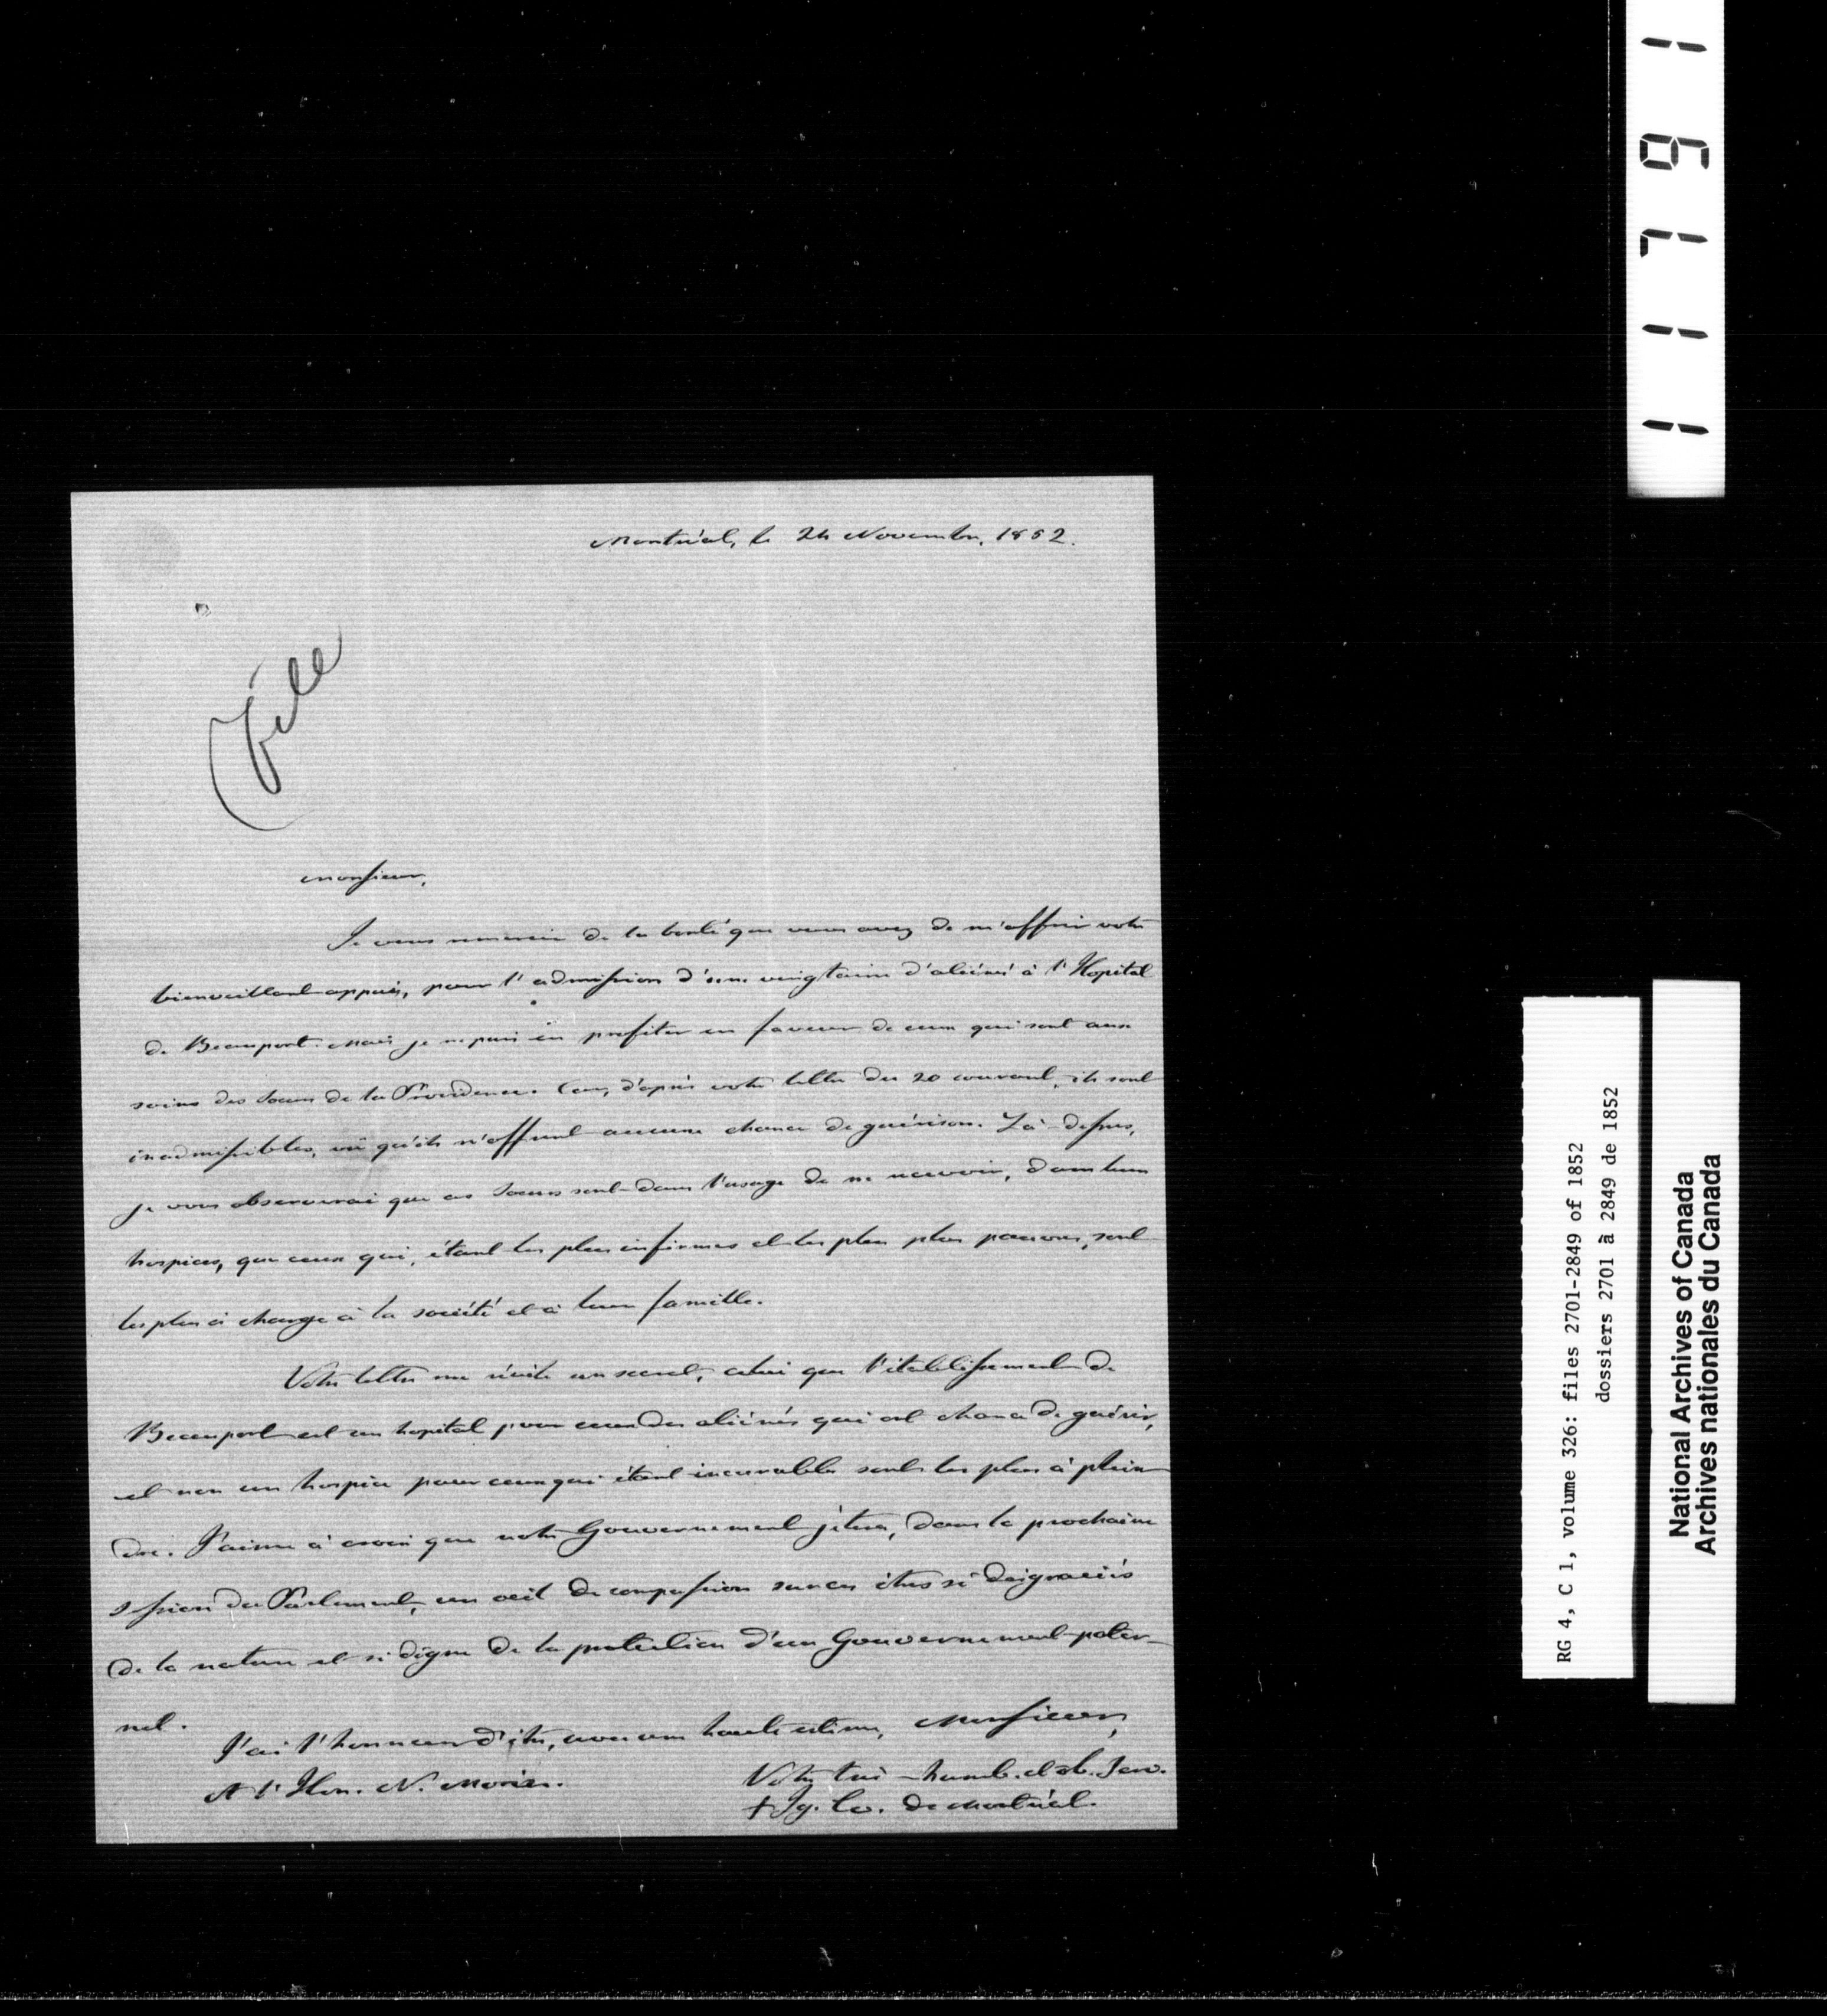 Montréal, le 24 Novembre, 1852.
File
Monsieur,
Je vous remercie de la bonté que vous avez de m'offrir votre
bienveillant appui, pour l'admission d'une vingtaine d'aliéné à l'Hopital
de Beauport. Mais je ne puis en profiter en faveur de ceux qui sont aux
soins des Soeurs de la Providence. Car, d'après votre lettre du 20 courant, ils sont
inadmissibles, vû qu'ils n'offrent aucune chance de guérison. Là-dessus,
je vous observerai que ces Soeurs sont dans l'usage de ne recevoir, dans leurs
hospices, que ceux qui, étant les plus infirmes et les plus plus pauvres, sont
les plus à charge à la société et à leur famille.
Votre lettre me révèle un secret, celui que l'établissement de
Beauport est un hopital pour ceux des aliénés qui ont chance de guérir,
et non un hospice pour ceux qui étant incurables sont les plus à plain
dre. J'aime à croire que notre Gouvernement jètera, dans la prochaine
session du Parlement, un oeil de compassion sur ces êtres si disgraciés
de la nature et si digne de la protection d'un Gouvernement pater-
nel.
J'ai l'honneur d'être, avec une haute estime, Monsieur,
Votre très-humb. et ob. Serv.
A l'Hon. N. Morin.
+ Ig. Ev. de Montréal.
11791
RG 4, C 1, volume 326: files 2701-2849 of 1852
dossiers 2701 à 2849 de 1852
National Archives of Canada
Archives nationales du Canada